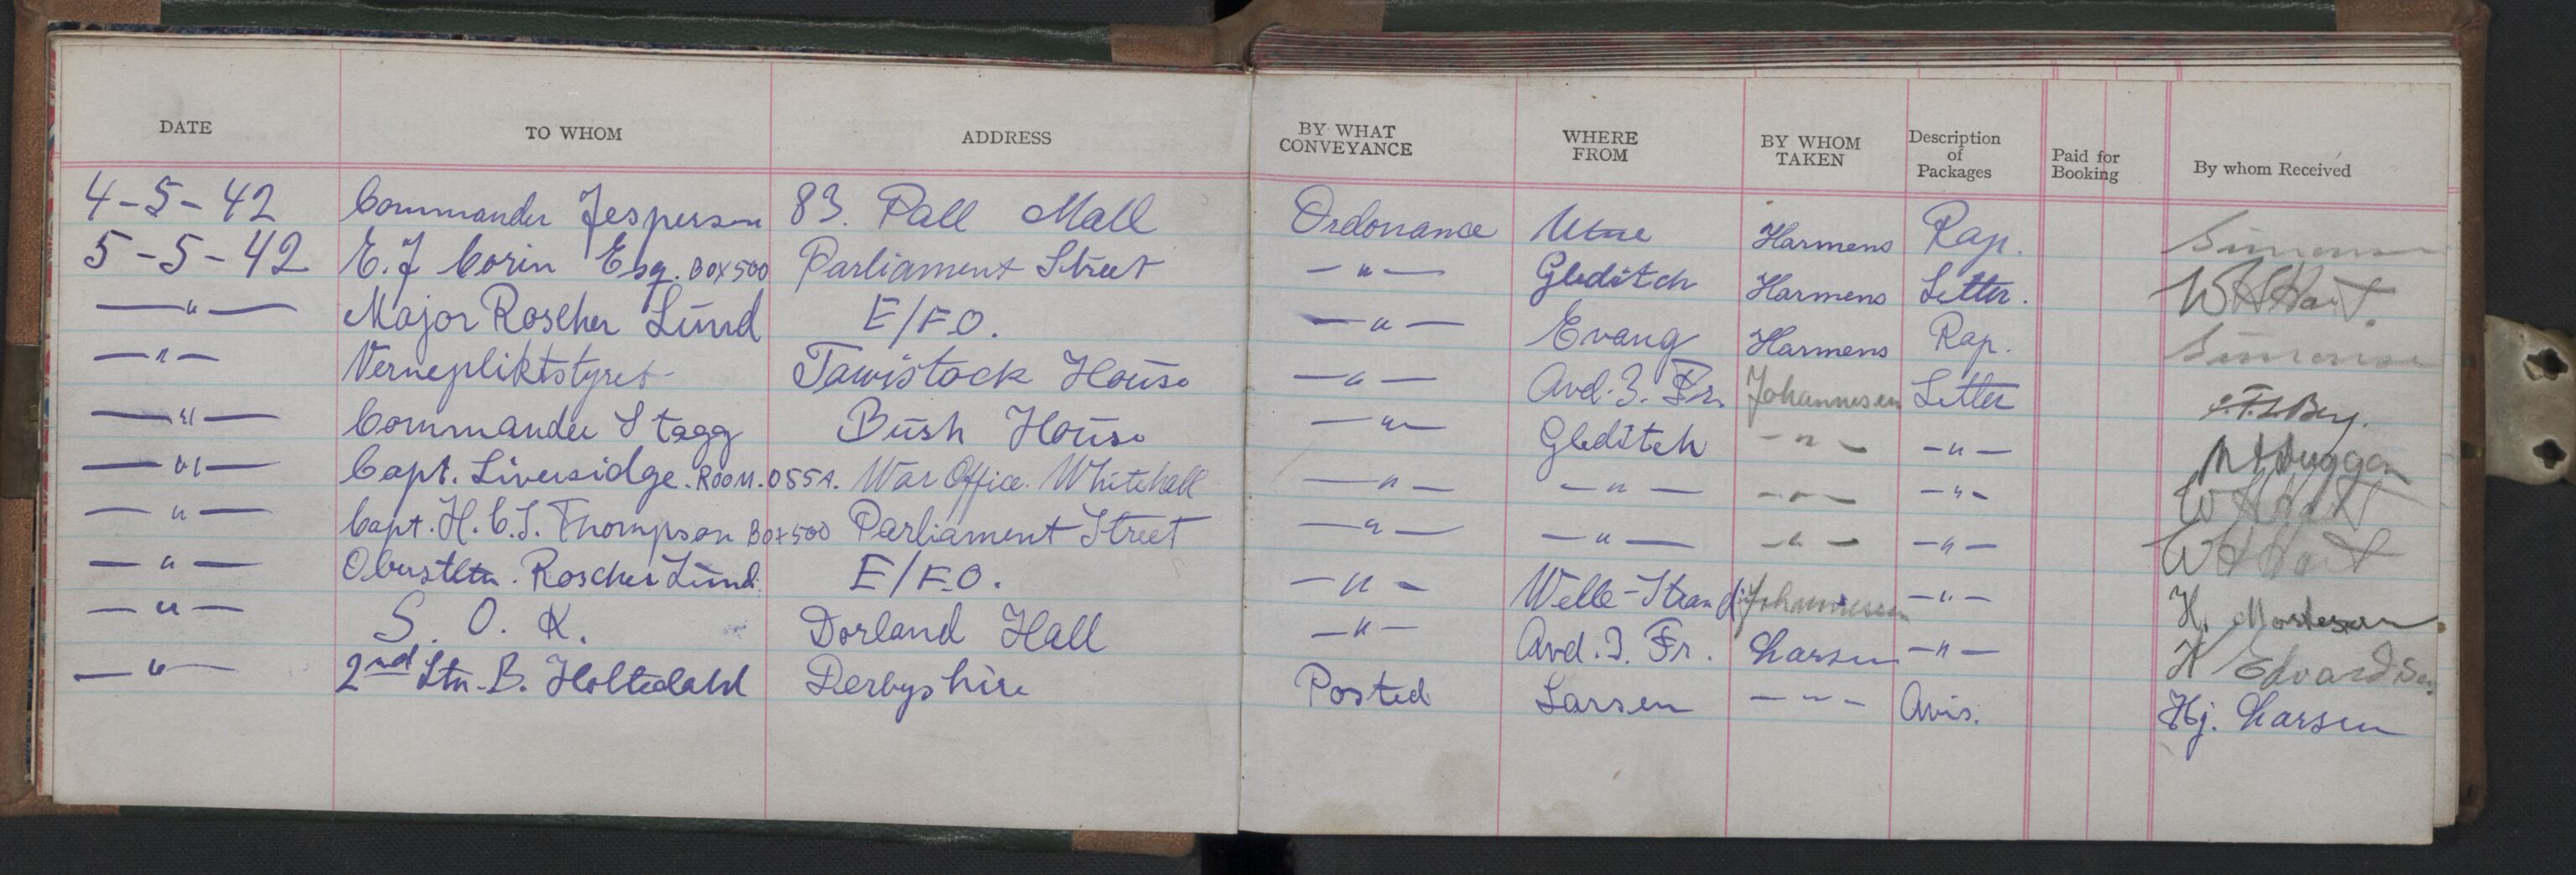 DATE TO WHOM ADDRESS BY WHAT CONVEYANCE WHERE FROM BY WHOM TAKEN Description of Packages Paid for Booking By whom Received
4-5-42 Commander Jespersen 83. Pall Mall Ordonance Utne Harmens Rap. Simensen
5-5-42 E.J Corin Esq. BOX 500 Parliament Street —"— Gleditch Harmens Letter. W H Hart.
—"— Major Roscher Lund E/F.O. —"— Evang Harmens Rap. Simensen
—"— Vernepliktstyret Tawistock House —"— Avd. 3. Fr. Johannesen Letter Berg.
—"— Commander Stagg Bush House —"— Gleditch —"— —"— Duggan
—"— Capt. Liversidge. ROOM. 055A. War Office. Whitehall —"— —"— —"— —"— W H Hart
—"— Capt. H.C.S. Thompson Box 500 Parliament Street —"— —"— —"— —"— W H Hart
—"— Oberstltn. Roscher Lund. E/F.O. —"— Welle-Strand Johannesen —"— H. Mortensen
—"— S. O. K. Dorland Hall —"— Avd. 3. Fr. Larsen —"— H Edvardsen
—"— 2nd Ltn. B. Holtedahl Derbyshire Posted Larsen —"— Avis. Hj. Larsen